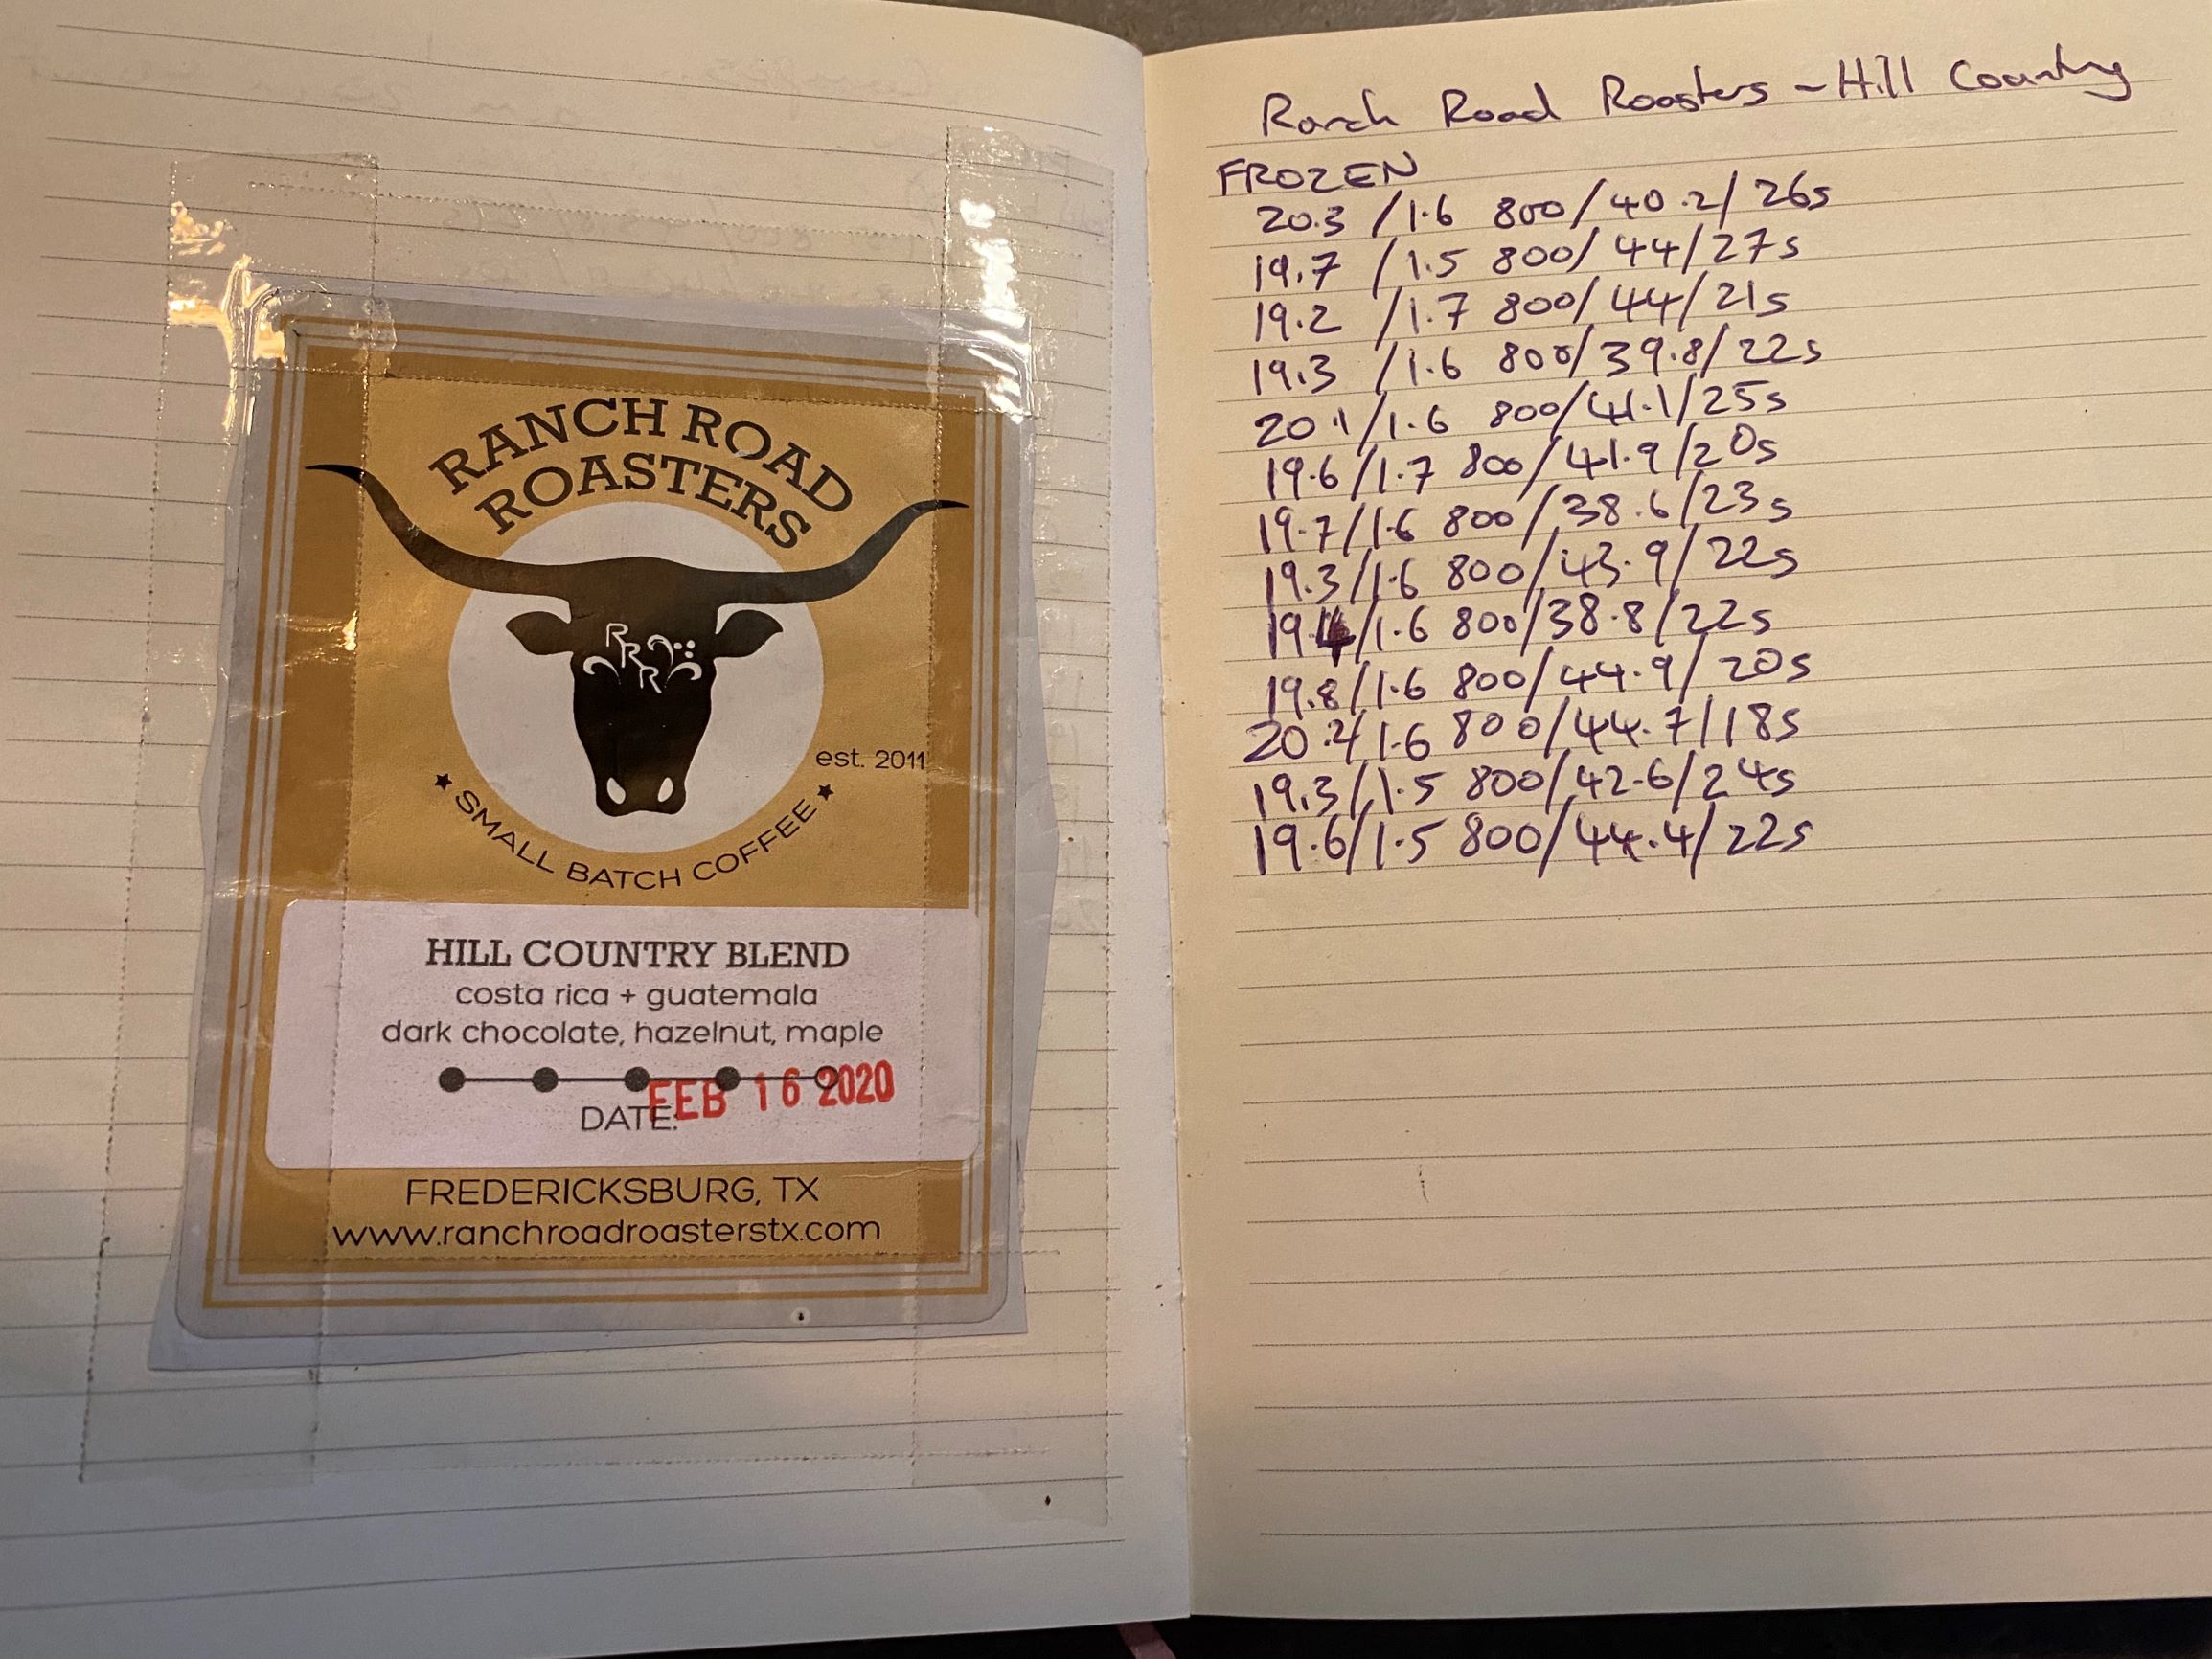 RANCH ROAD
ROASTERS
RRR
est. 2011
SMALL BATCH COFFEE
HILL COUNTRY BLEND
costa rica + guatemala
dark chocolate, hazelnut, maple
FEB 16 2020
DATE:
FREDERICKSBURG, TX
www.ranchroadroasterstx.com
Ranch Road Roasters - Hill Country
FROZEN
20.3 / 1.6 800/ 40.2/ 26s
19.7 / 1.5 800/ 44/ 27s
19.2 / 1.7 800/ 44/ 21s
19.3 / 1.6 800/ 39.8/ 22s
20.1/ 1.6 800/ 41.1/ 25s
19.6/ 1.7 800/ 41.9/ 20s
19.7/ 1.6 800/ 38.6/ 23s
19.3/ 1.6 800/ 43.9/ 22s
19.4/ 1.6 800/ 38.8/ 22s
19.8/ 1.6 800/ 44.9/ 20s
20.2/ 1.6 800/ 44.7/ 18s
19.3/ 1.5 800/ 42.6/ 24s
19.6/ 1.5 800/ 44.4/ 22s